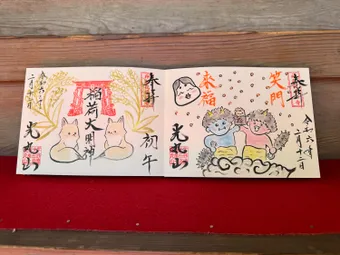 奉拝
笑門
来福
令和六年
二月十二日
光丸山
奉拝
稲荷大明神
初午
令和六年
二月十二日
光丸山